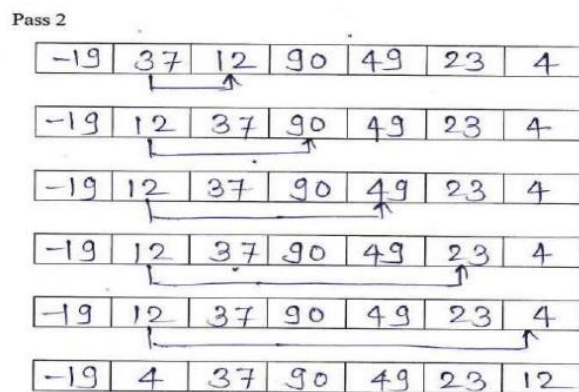 Pass 2
-19 37 12 90 49 23 4
-19 12 37 90 49 23 4
-19 12 37 90 49 23 4
-19 12 37 90 49 23 4
-19 12 37 90 49 23 4
-19 4 37 90 49 23 12